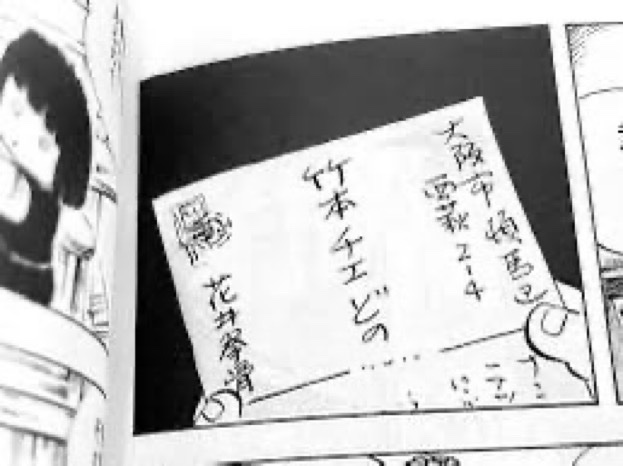 大阪市頓馬区
西萩2-4
竹本チエどの
花井拳骨